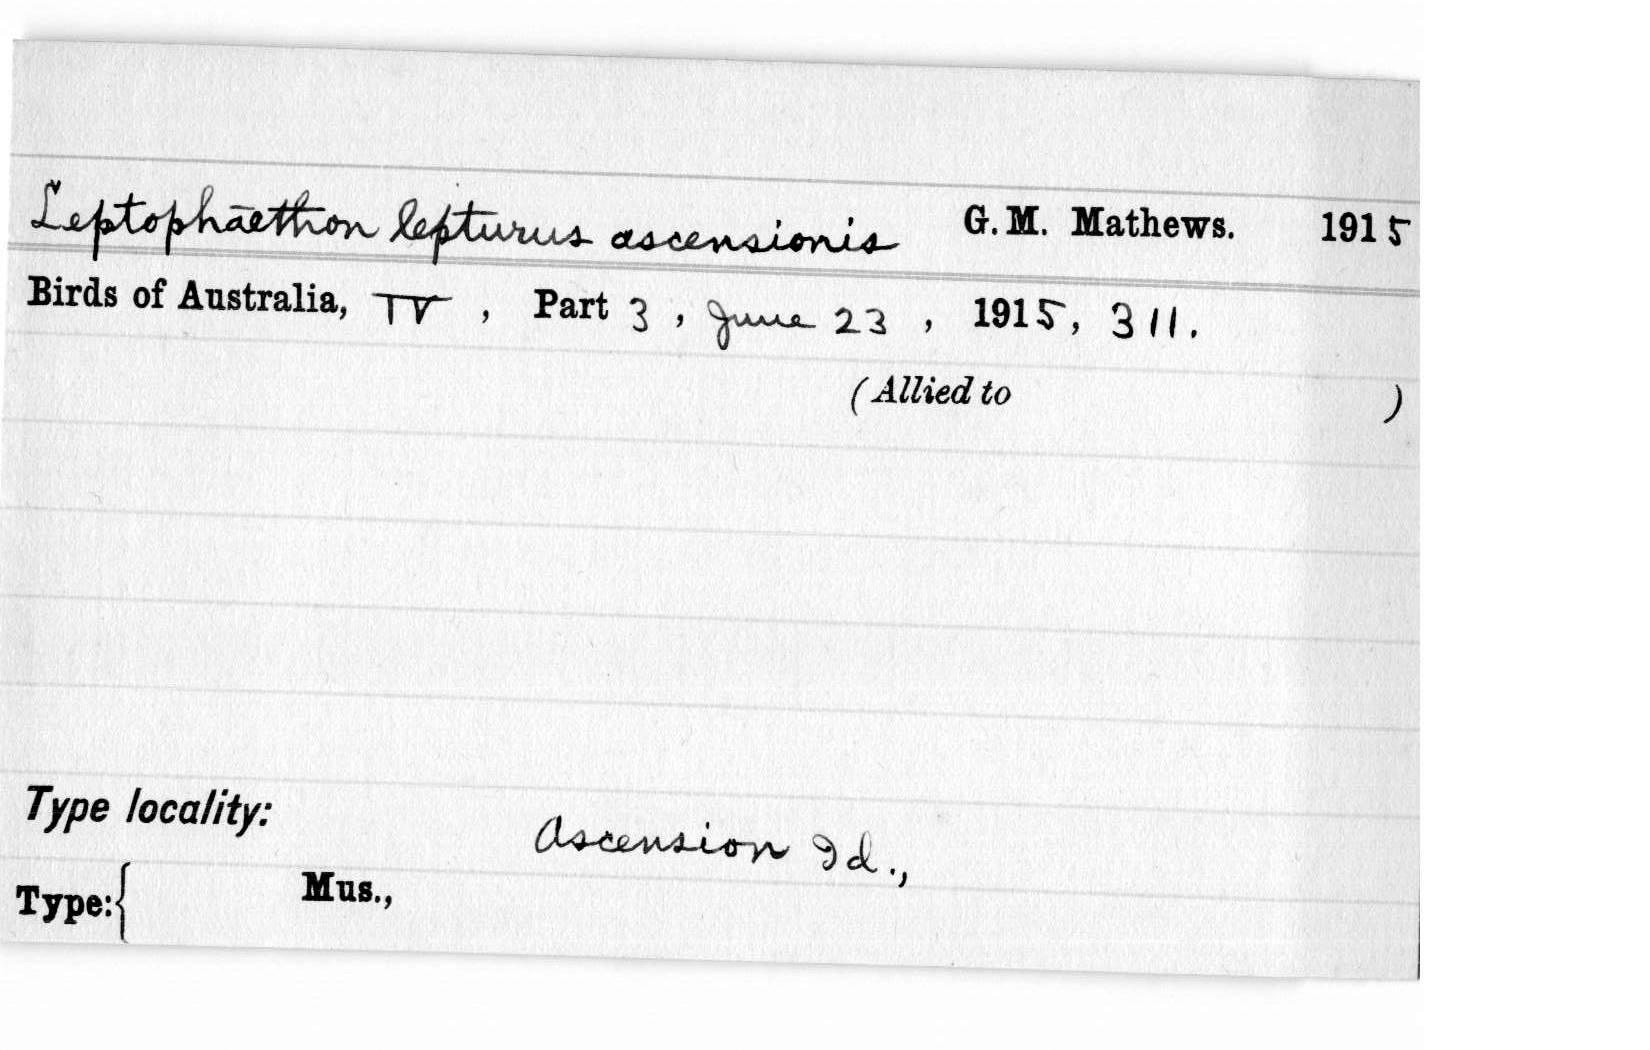 Leptophāethon lepturus ascensionis G. M. Mathews. 1915
Birds of Australia, IV, Part 3, June 23, 1915, 311.
(Allied to )
Type locality:
Ascension Id.,
Type:{ Mus.,